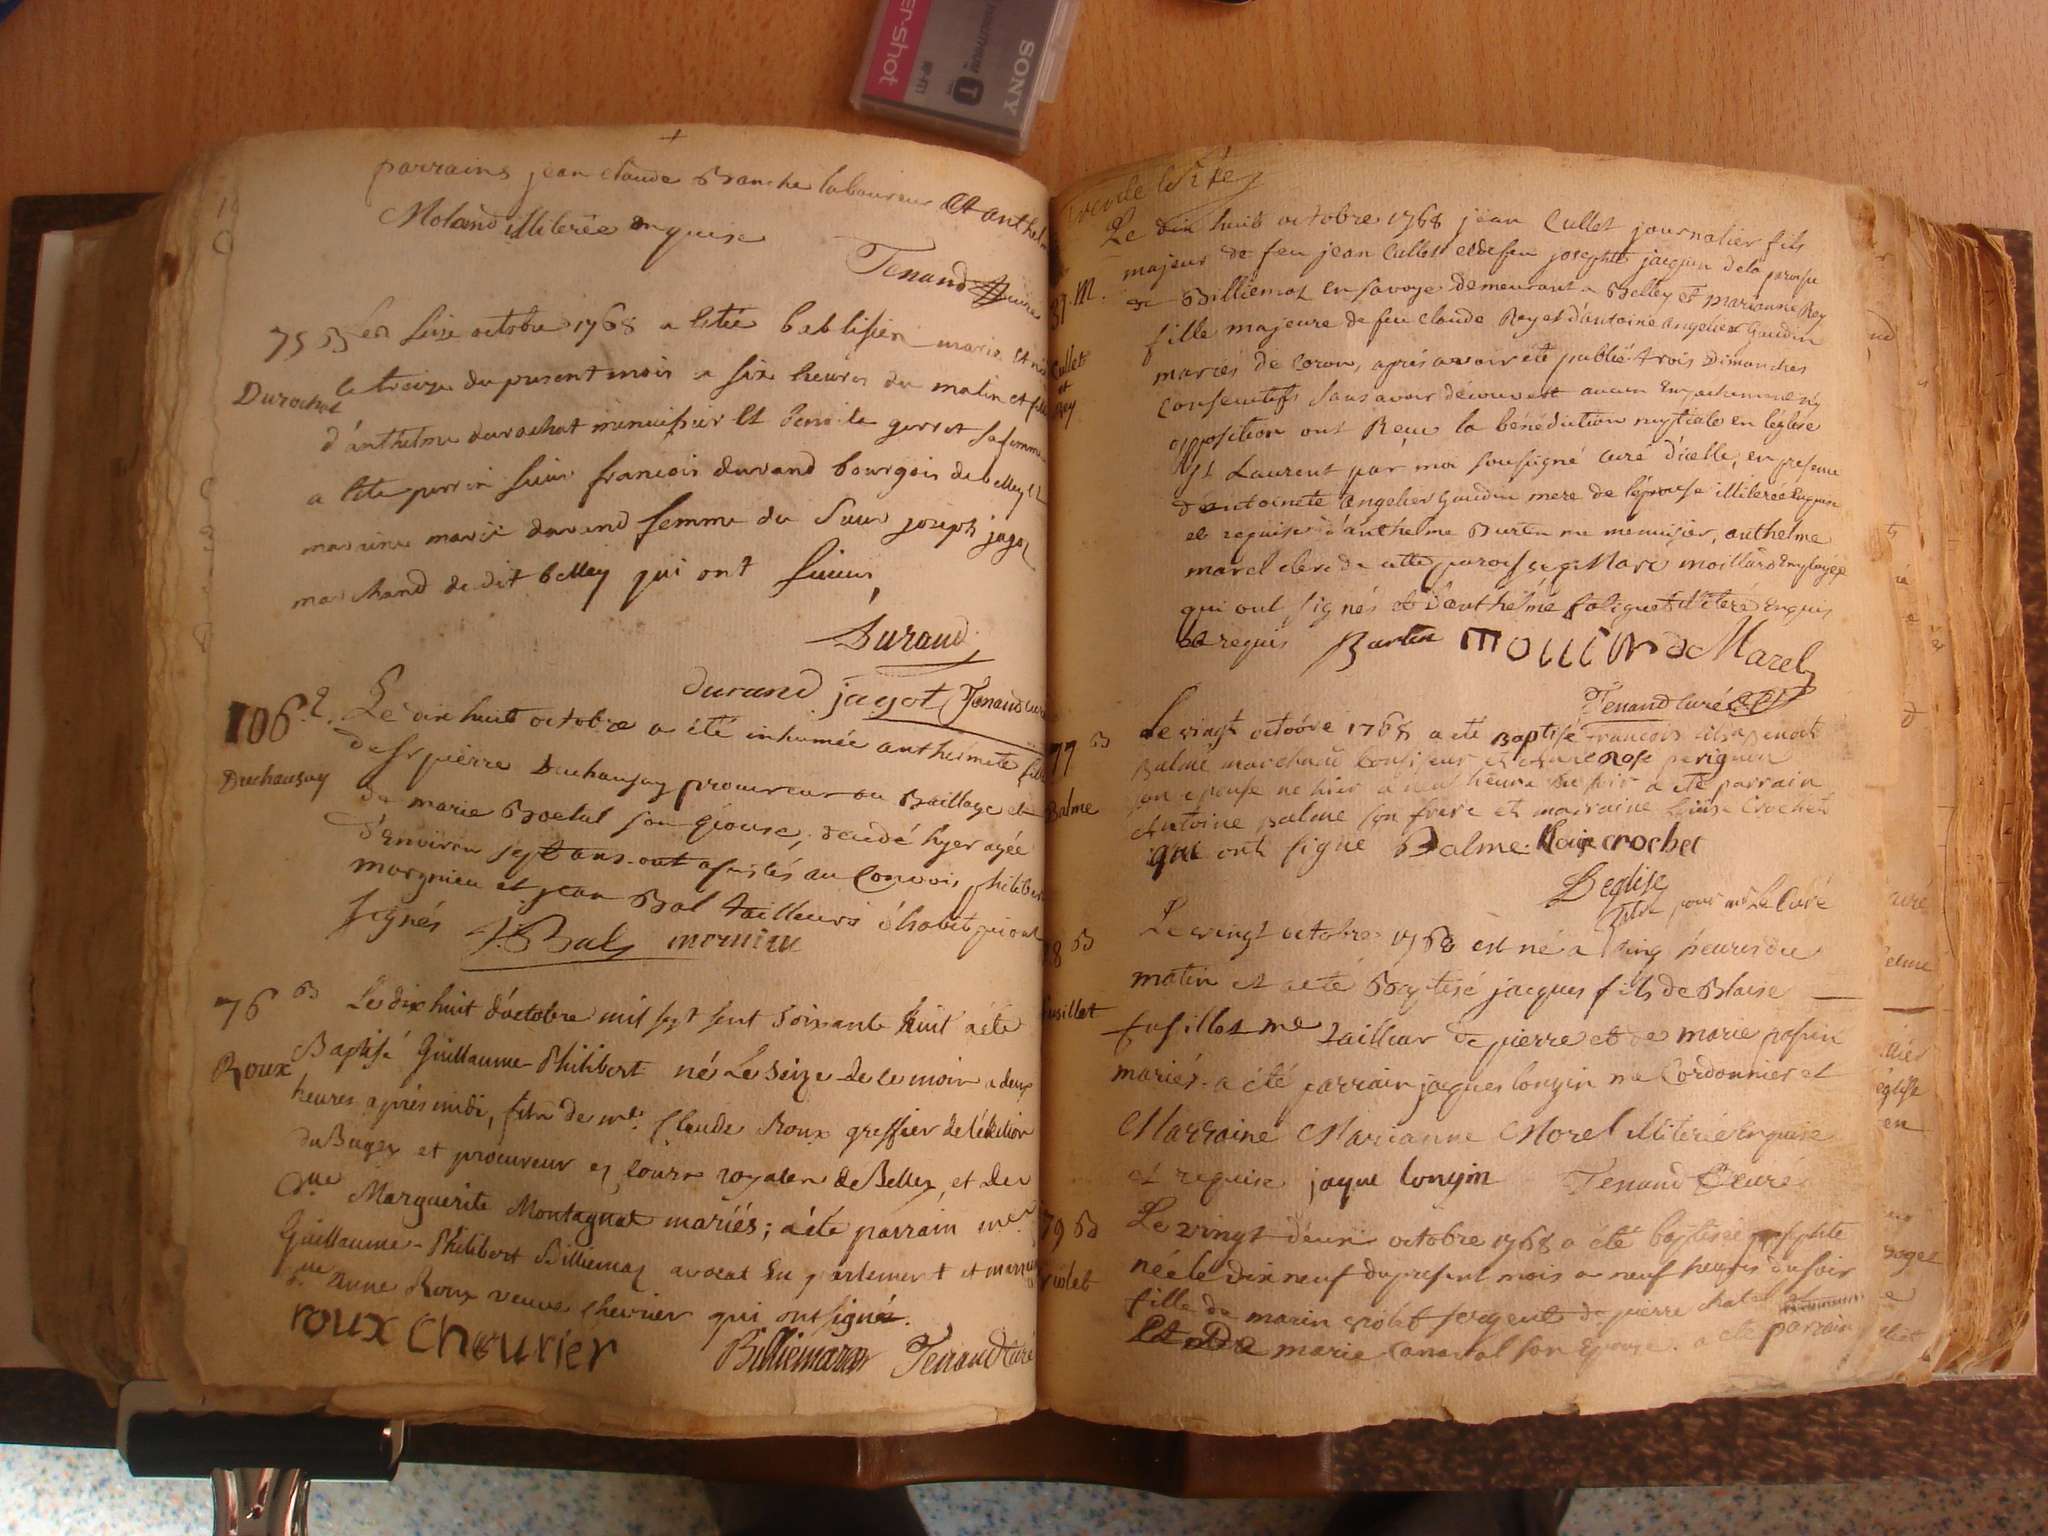 er-shot
SONY
parrains jean claude Blanche laboureur et anthelm
Moland illiterée enquise
Tenand Curé
75 B Le seize octobre 1768 a été batisée marie et née
le treize du present mois a six heures du matin et fille
Durochat
d'anthelme durochat menuisier et benoite gerret sa femme
a été parrin sieur francois durand bourgois de belley et
marine marie durand femme du sieur joseph jagot
marchand dudit belley qui ont
Durand
durand jagot Tenand curé
106.e Le dix huit octobre a été inhumée anthelmete fille
Duchausay
de sr pierre Duchausay procureur au Baillage et
de marie Boetal son épouse, decedé hyer agée
d'environ sept ans ont assistés au Convois philibert
margnieu et jean Bal tailleurs d'habits qui ont
signés J. Bal
76 B Le dix huit d'octobre mil sept sent soixante huit a été
Roux Baptisé Guillaume-Philibert né Le seize de ce mois a deux
heures après midi, fils de me. Claude Roux greffier de l'élection
du Bugey et procureur es cours royales de Belley, et de
Dlle Marguerite Montagnat mariés; a été parrain me.
Guillaume-Philibert Billiemaz avocat en parlement et marraine
Dlle anne Roux veuve chevrier qui ont signés.
roux Cheurier
Billiemaz Tenand Curé
Le dix huit octobre 1768 jean Cullet journalier fils
majeur de feu jean Cullet et de feu josephte jacquin de la paroisse
37. M. de Billiemaz en savoye demeurant a Belley et marianne Rey
fille majeure de feu claude Rey et d'antoine angelier Gaudin
Cullet mariés de Coron, après avoir été publié trois Dimanches
et
Rey consecutifs sans avoir découvert aucun Empechement ny
opposition ont Reçu la bénédiction nuptiale en léglise
St Laurent par moi soussigné curé d'icelle, en presence
d'antoinete angelier Gaudin mere de l'épouse illiterée Enquise
et requise d'anthelme Burtin me menuisier, anthelme
marel clerc de cette paroisse Marc moillard Employé
qui ont signés et d'anthelme illiteré Enquis
et requis Burtin Marel
Tenand Curé
77 B Le vingt octobre 1768 a été Baptisé francois fils a benoit
Balme marchand et claire Rose perignon
Balme son epouse né hier a heure du soir a été parrain
Antoine palme son frere et marraine Louise Crochet
qui ont signé Balme Louise crochet
L'eglise
pour mr Le Curé
78 B Le vingt octobre 1768 est né a cinq heures du
matin et a été Baptisé jacques fils de Blaise
fusillet fusillet me tailleur de pierre et de marie
mariés a été parrain jacques longin me Cordonnier et
Marraine Marianne Morel illiterée Enquise
et requise jaque longin Tenand Curé
79 B Le vingt d'eux octobre 1768 a été baptisée josephte
née le dix neuf du present mois a neuf heures du soir
violet fille de marin violet sergent de pierre chatel
Et de marie Canaval son Epouse. a été parrain